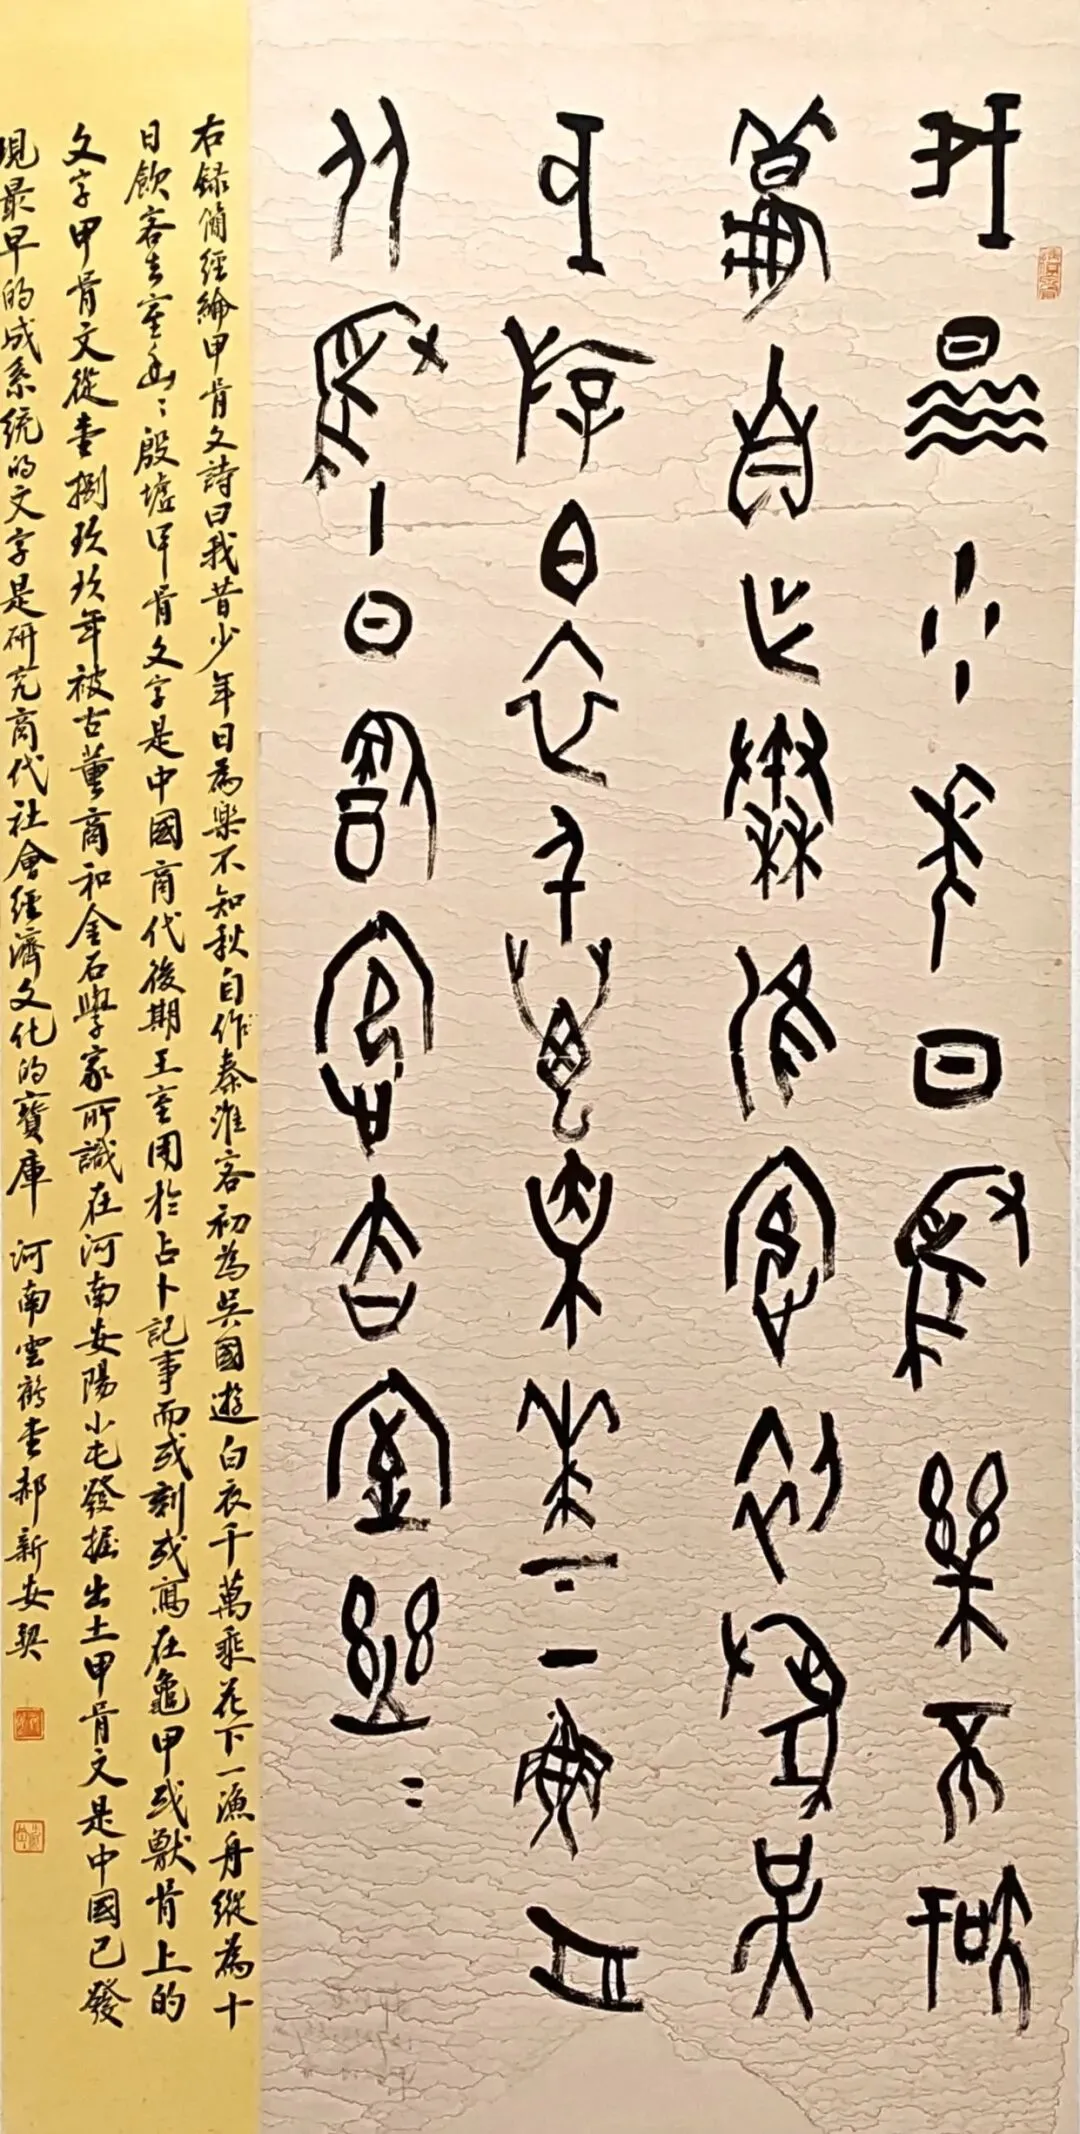 我昔少年日為樂不知
秋自作秦淮客初為吳
國遊白衣千萬乘花下一漁舟
縱為十日飲客去室幽〻
右錄簡經綸甲骨文詩曰我昔少年日為樂不知秋自作秦淮客初為吳國遊白衣千萬乘花下一漁舟縱為十
日飲客去室幽〻殷墟甲骨文字是中國商代後期王室用於占卜記事而或刻或寫在龜甲或獸骨上的
文字甲骨文從壹捌玖玖年被古董商和金石學家所識在河南安陽小屯發掘出土甲骨文是中國已發
現最早的成系統的文字是研究商代社會經濟文化的寶庫 河南雲鶴堂郝新安契